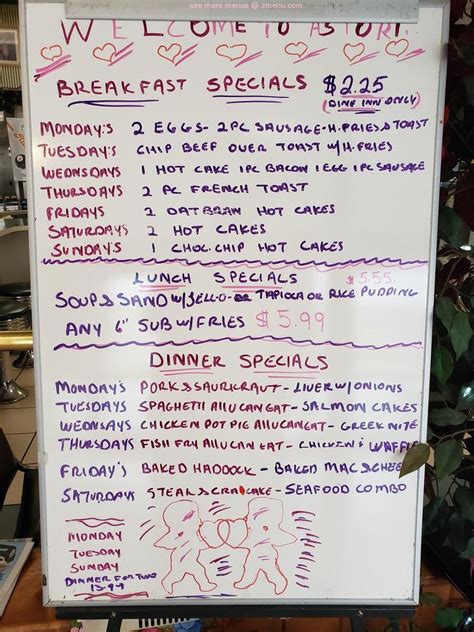 see more menus @ zmenu.com
WELCOME TO ASTORI
BREAKFAST SPECIALS $2.25
(DINE INN ONLY)
MONDAY'S 2 EGGS- 2PC SAUSAGE-H.FRIES & TOAST
TUESDAY'S CHIP BEEF OVER TOAST W/H.FRIES
WEDNSDAYS 1 HOT CAKE 1PC BACON 1 EGG 1PC SAUSAGE
THURSDAYS 2 PC FRENCH TOAST
FRIDAYS 2 OATBRAN HOT CAKES
SATURDAYS 2 HOT CAKES
SUNDAY'S 1 CHOC. CHIP HOT CAKES
LUNCH SPECIALS $5.55
SOUP & SAND W/JELLO-OR TAPIOCA OR RICE PUDDING
ANY 6" SUB W/FRIES $5.99
DINNER SPECIALS
MONDAY'S PORK & SAURKRAUT - LIVER W/ONIONS
TUESDAYS SPAGHETTI ALLUCANEAT - SALMON CAKES
WEDNSAYS CHICKEN POT PIE ALLUCANEAT - GREEK NITE
THURSDAYS FISH FRY ALLUCAN EAT - CHICKEN & WAFFLE
FRIDAY'S BAKED HADDOCK - BAKED MAC & CHEE
SATURDAYS STEAK & CRABCAKE - SEAFOOD COMBO
MONDAY
TUESDAY
SUNDAY
DINNER FOR TWO
13.99